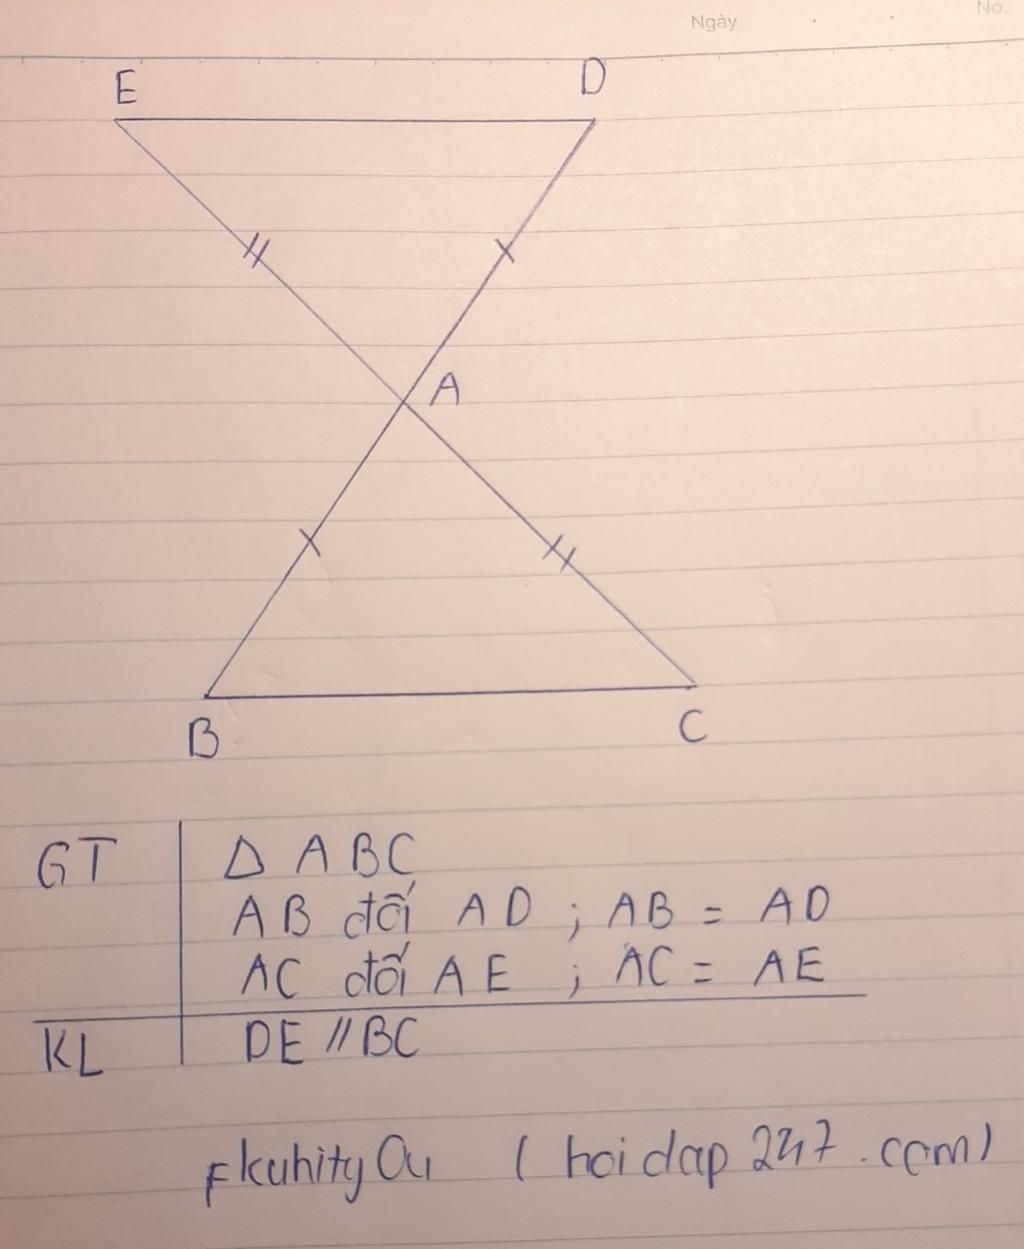 Ngày
No.
E
D
A
B
C
GT
Δ ABC
AB đối AD ; AB = AD
AC đối AE ; AC = AE
KL
DE // BC
( hoidap 247 .com)